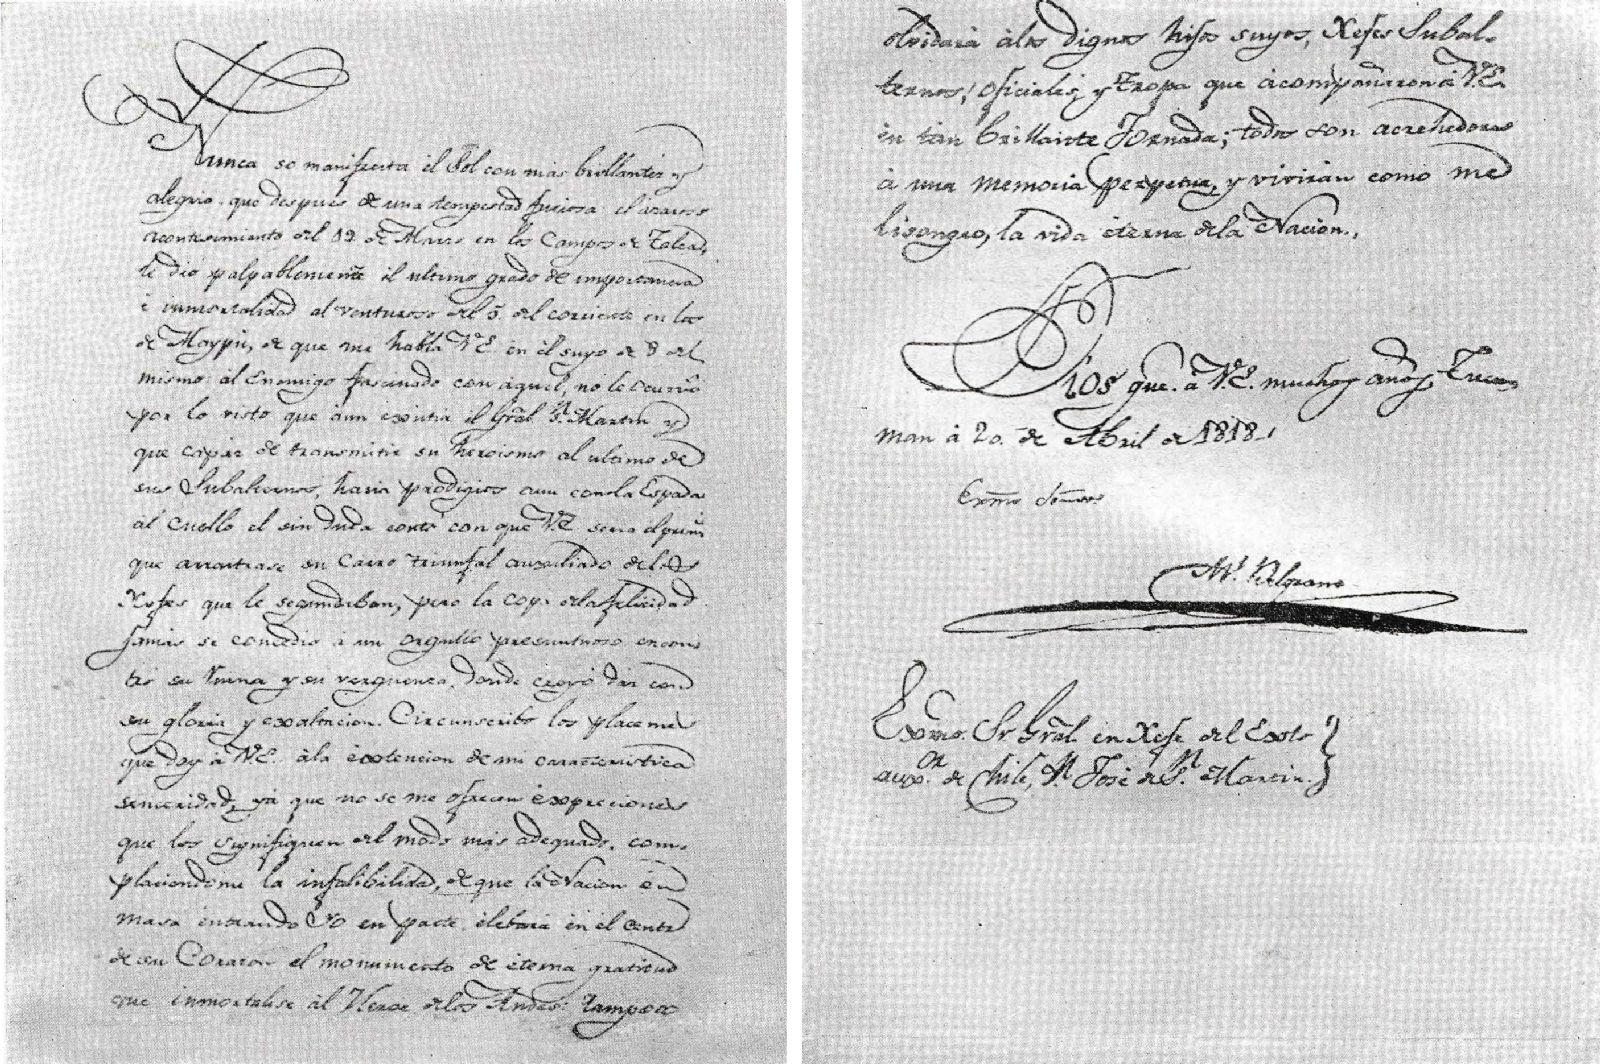 Nunca se manifiesta il Sol con más brillantez y
alegria que después de una tempestad furiosa: il
acontecimiento del 19 de Marzo en los Campos de Talca,
le dió palpablemente il ultimo grado de importancia
è inmortalidad al venturoso del 5 del corriente en los
de Maypú, de que me habla V.E. en il suyo de 9 del
mismo: al Enemigo fascinado con aquel, no le ocurrió
por lo visto que aun existia il Gral. Sn. Martin y
que capáz de transmitir su heroismo al ultimo de
sus Subalternos, haria prodigios aun con la Espada
al Cuello el sin duda contó con que V.E. seria el
que arrastrase su Carro triunfal auxiliado de los
Xefes que le segundaban, pero la de la felicidad
jamás se concedió à un orgullo presuntuoso encon
tró su ruina y su verguenza, donde creyó dar con
su gloria y exaltacion. Circunscribo los placemes
que doy à V.E. àla extencion de mi caracteristica
senceridad, yá que no se me ofrecen expreciones
que los signifiquen del modo más adequado, com-
placiendome la infalibilidad, de que la Nacion en
masa entrando Yo en parte elebará en el Centro
de su Corazon el monumento de eterna gratitud
que inmortalise àl Heroe delos Andes: tampoco
olvidará àlos dignos hijos suyos, Xefes Subal-
ternos, oficiales, y tropa que àcompañaron à V.E.
en tan brillante Jornada; todos son acrehedores
à una memoria perpetua, y vivirán como me
lisongeo, la vida eterna dela Nacion.
Dios gue. à V.E. muchos años, Tucu
man à 20 de Abril de 1818.
Exmo Señor
Ml. Belgrano
Exmo. Sr. Gral. en Xefe del Exto
auxor. de Chile, Dn. José de Sn. Martin.